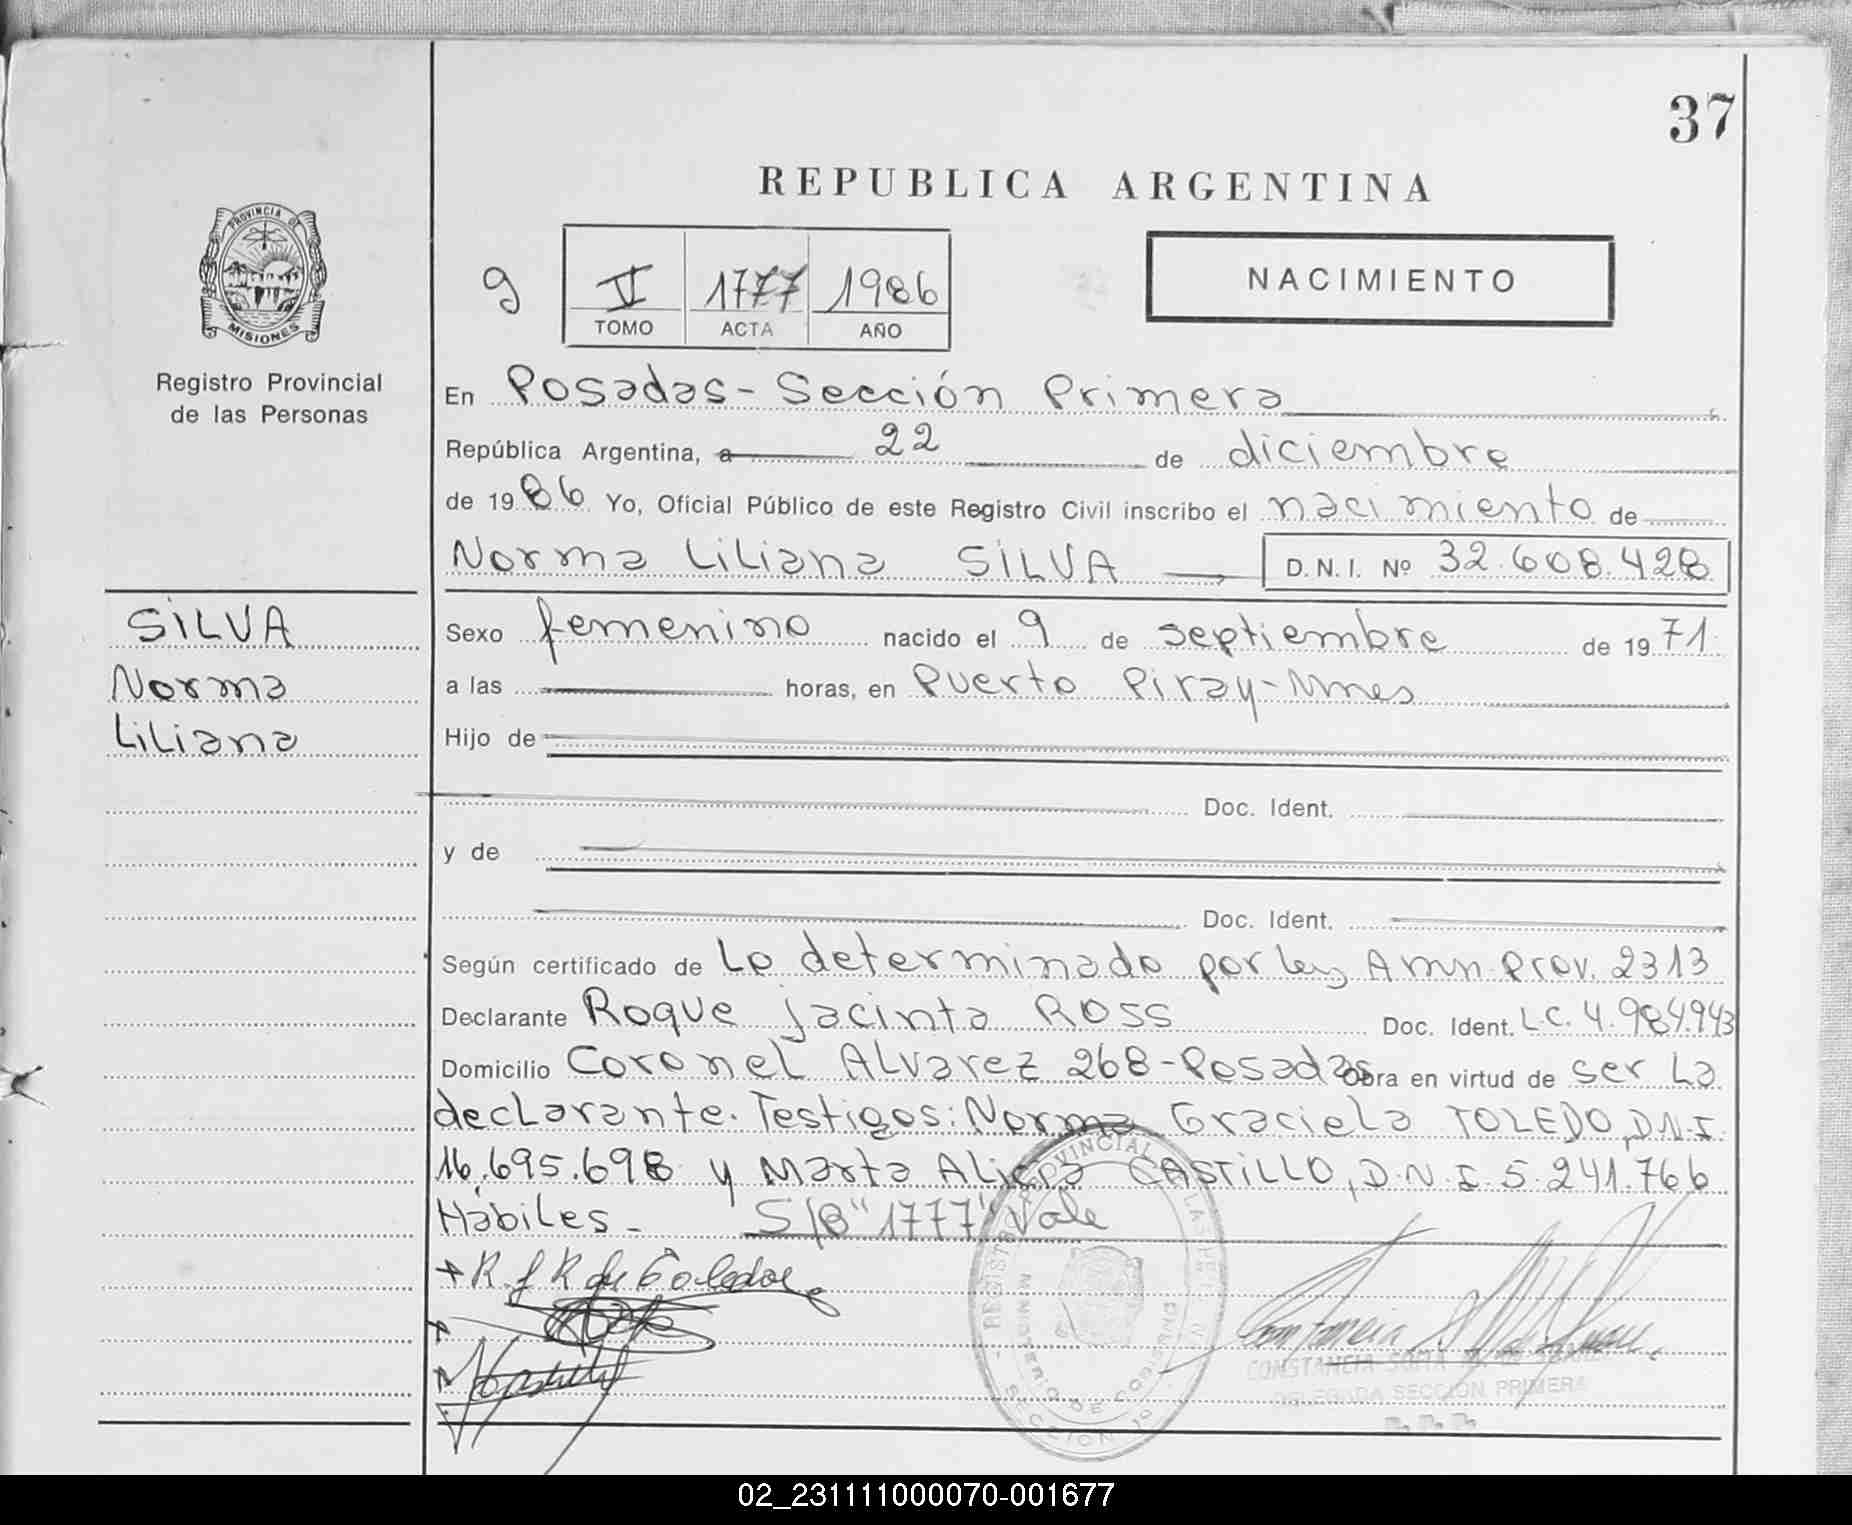 37
REPUBLICA ARGENTINA
PROVINCIA DE
MISIONES
Registro Provincial
de las Personas
9
V 1777 1986
TOMO ACTA AÑO
NACIMIENTO
En Posadas - Sección Primera
República Argentina, a 22 de diciembre
de 19 86 Yo, Oficial Público de este Registro Civil inscribo el nacimiento de
Norma Liliana SILVA D.N.I. Nº 32.608.428
SILVA
Norma
Liliana
Sexo femenino nacido el 9 de septiembre de 19 71
a las horas, en Puerto Piray - Mnes
Hijo de
Doc. Ident.
y de
Doc. Ident.
Según certificado de Lo determinado por ley Amn. Prov. 2313
Declarante Roque Jacinta ROSS Doc. Ident. L.C. 4.984.943
Domicilio Coronel Alvarez 268 - Posadas Obra en virtud de ser La
declarante. Testigos: Norma Graciela TOLEDO, D.N.I.
16.695.698 y Marta Alicia CASTILLO, D.N.I. 5.241.766
Hábiles - S/B "1777" Vale
R. J. R de Toledo
REGISTRO PROVINCIAL DE LAS PERSONAS
MINISTERIO DE GOBIERNO
SECCION 1º
CONSTANCIA SOFIA
DELEGADA SECCION PRIMERA
R. P. P.
02_231111000070-001677